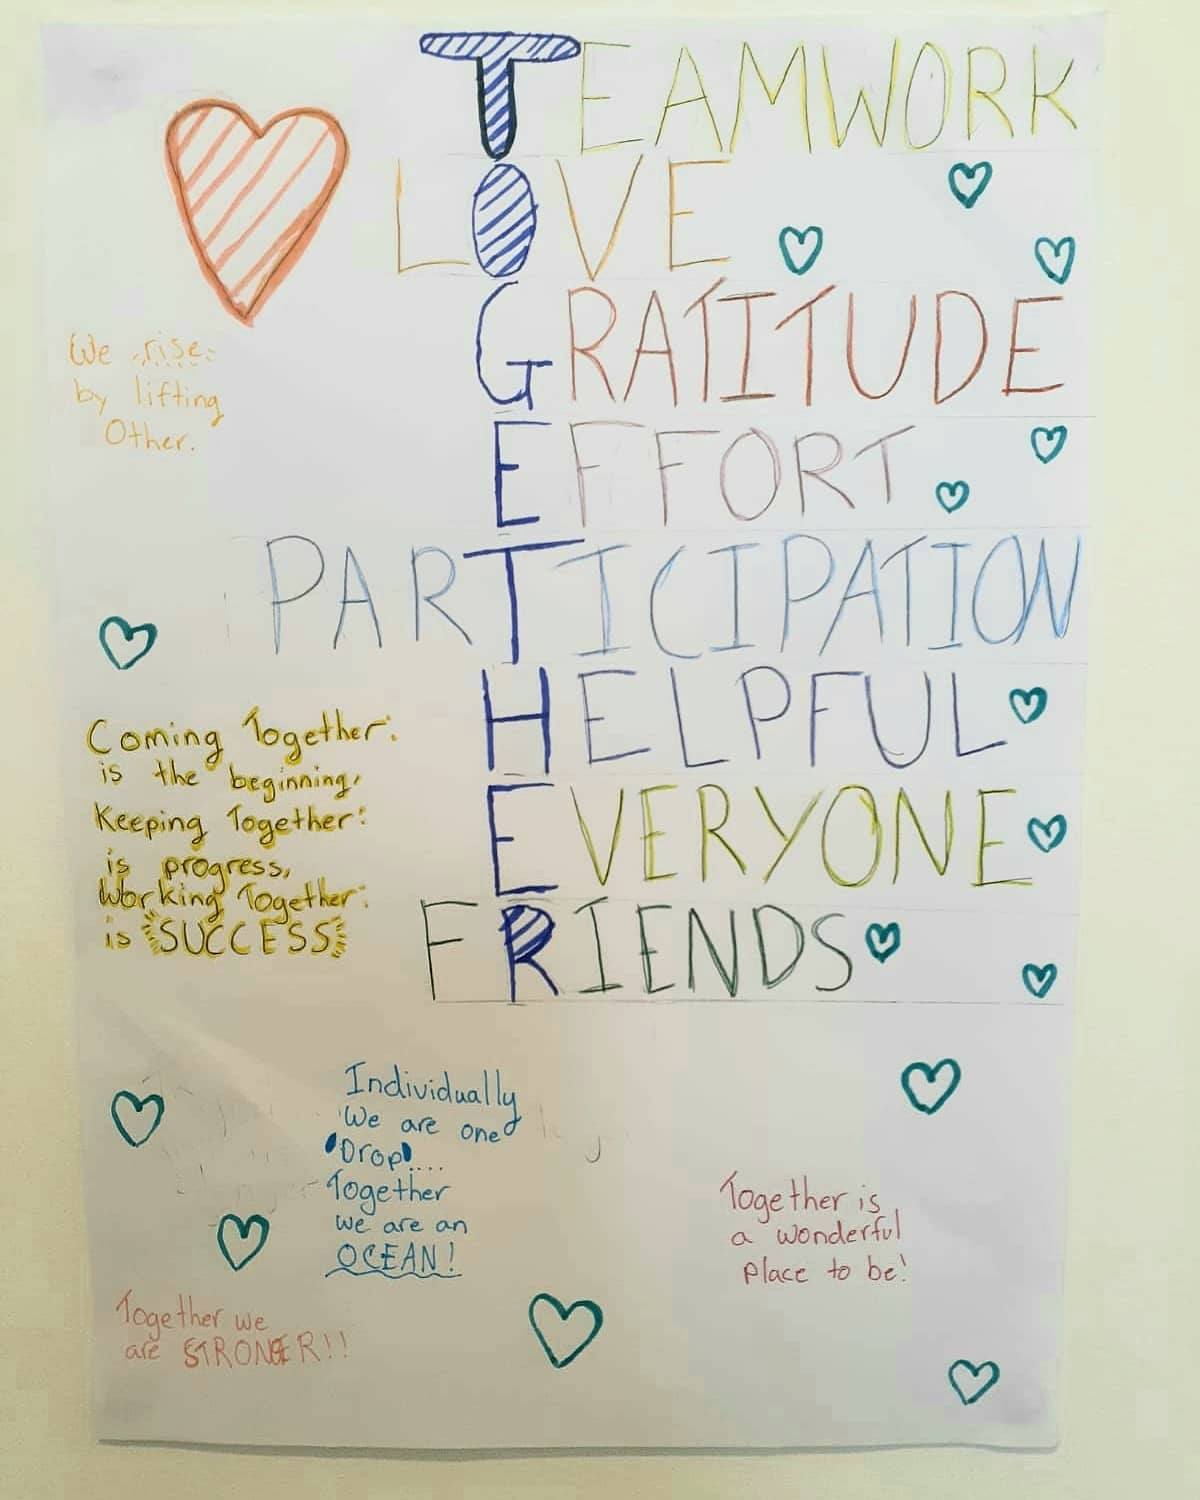 TEAMWORK
LOVE
GRATITUDE
We rise
by lifting
Other.
EFFORT
PARTICIPATION
HELPFUL
EVERYONE
FRIENDS
Coming Together:
is the beginning,
Keeping Together:
is progress,
Working Together:
is SUCCESS
Individually
We are one
Drop....
Together
we are an
OCEAN!
Together is
a wonderful
Place to be!
Together we
are STRONGER!!